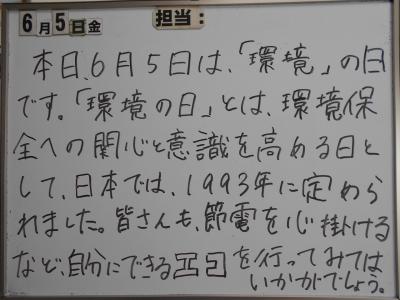 6月5日金 担当:
本日、6月5日は、「環境」の日
です。「環境の日」とは、環境保
全への関心と意識を高める日と
して、日本では、1993年に定めら
れました。皆さんも、節電を心掛ける
など、自分にできるエコを行ってみては
いかがでしょう。